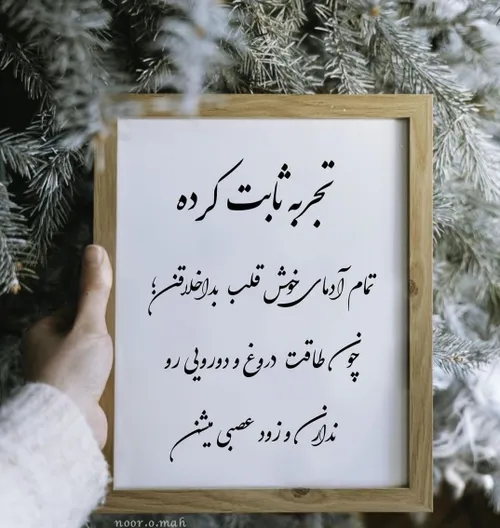 تجربه ثابت کرده
تمام آدمای خوش قلب بداخلاقن؛
چون طاقت دروغ و دورویی رو
ندارن و زود عصبی میشن
noor.o.mah